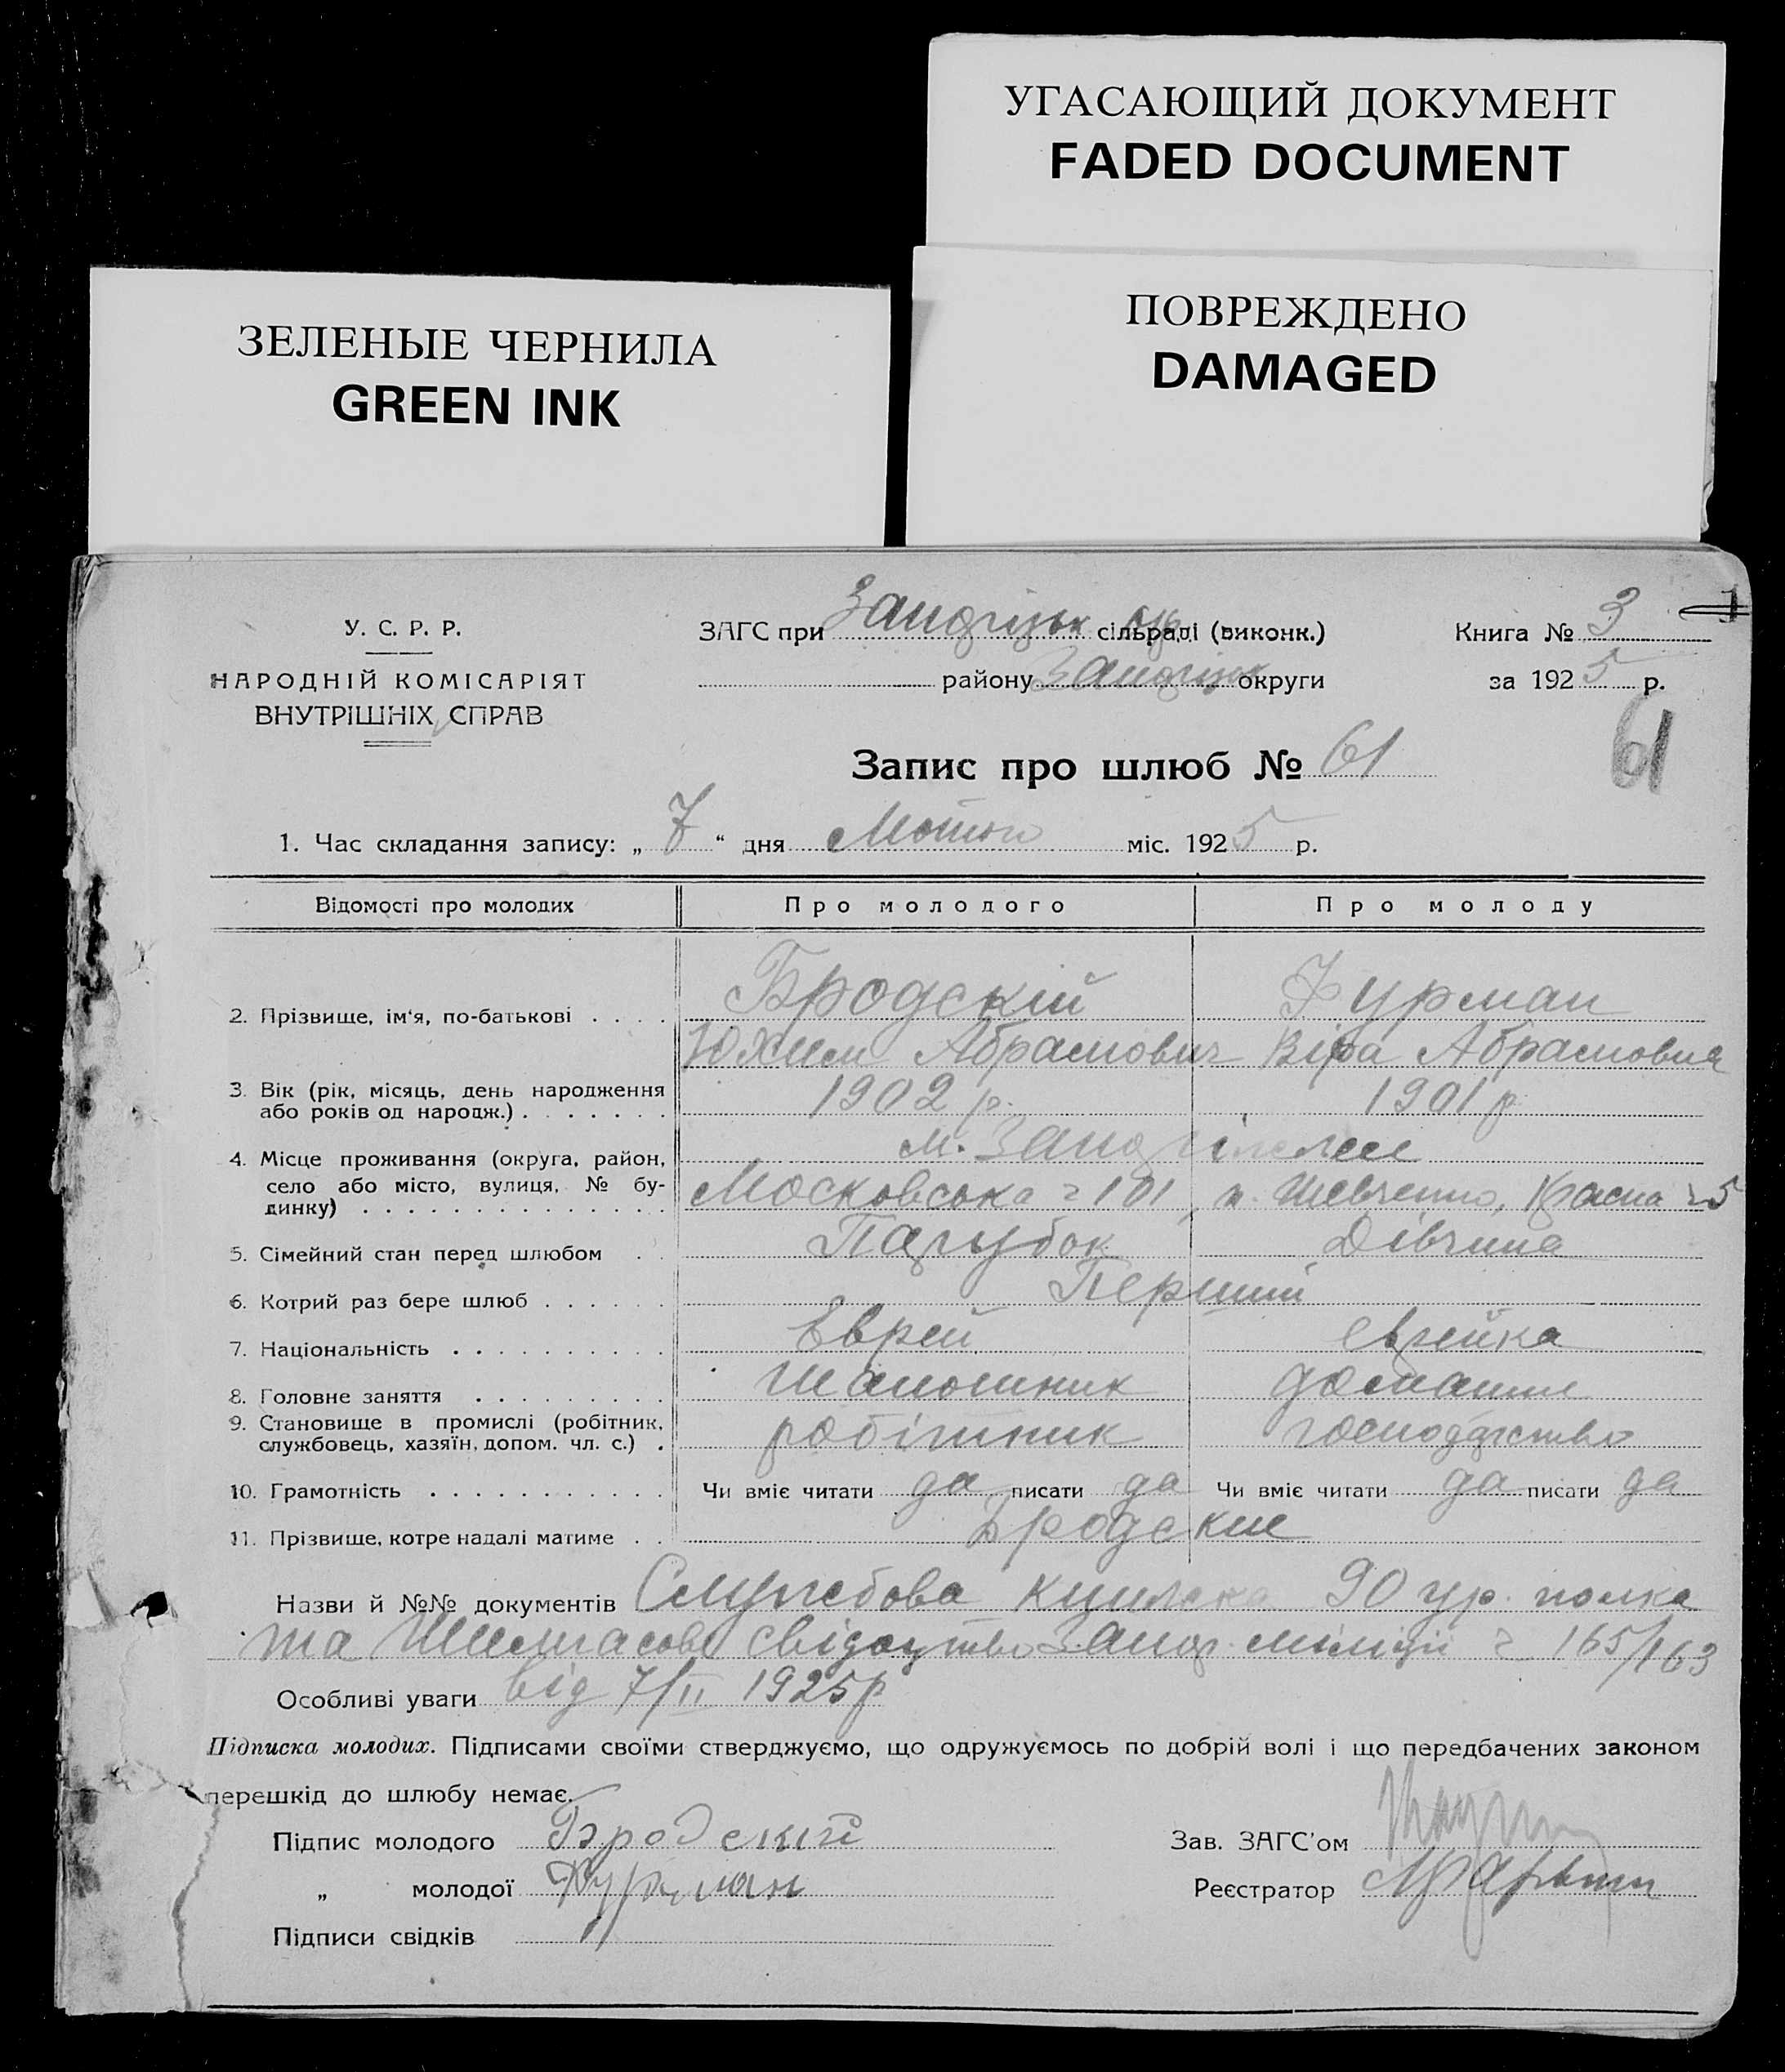 УГАСАЮЩИЙ ДОКУМЕНТ
FADED DOCUMENT
ПОВРЕЖДЕНО
DAMAGED
ЗЕЛЕНЫЕ ЧЕРНИЛА
GREEN INK
У. С. Р. Р.
НАРОДНІЙ КОМІСАРІЯТ
ВНУТРІШНІХ СПРАВ
ЗАГС при сільраді (виконк.)
району округи
Книга № 3
за 1925 р.
61
Запис про шлюб № 61
1. Час складання запису: „ 7 “ дня Лютого міс. 1925 р.
Відомості про молодих Про молодого Про молоду
2. Прізвище, ім'я, по-батькові . . . . Бродскій Фурман
Юхим Абрамович Віра Абрамовна
3. Вік (рік, місяць, день народження
або років од народж.) . . . . . . . 1902 р. 1901 р
4. Місце проживання (округа, район,
село або місто, вулиця, № бу-
динку) . . . . . . . . . . . . . . Московська 101, Шевченко, 5
5. Сімейний стан перед шлюбом . . Парубок Дівчина
6. Котрий раз бере шлюб . . . . . . Перший
7. Національність . . . . . . . . . . Еврей еврейка
8. Головне заняття . . . . . . . . Шапошник домашнє
9. Становище в промислі (робітник,
службовець, хазяїн, допом. чл. с.) . робітник господарство
10. Грамотність . . . . . . . . . . . Чи вміє читати да писати да Чи вміє читати да писати да
11. Прізвище, котре надалі матиме . . Бродские
Назви й №№ документів Службова книжка 90 полка
та свідоцтво міліції 165/163
Особливі уваги від 7/II 1925р
Підписка молодих. Підписами своїми стверджуємо, що одружуємось по добрій волі і що передбачених законом
перешкід до шлюбу немає.
Підпис молодого Бродский
„ молодої Фурман
Підписи свідків
Зав. ЗАГС'ом
Реєстратор